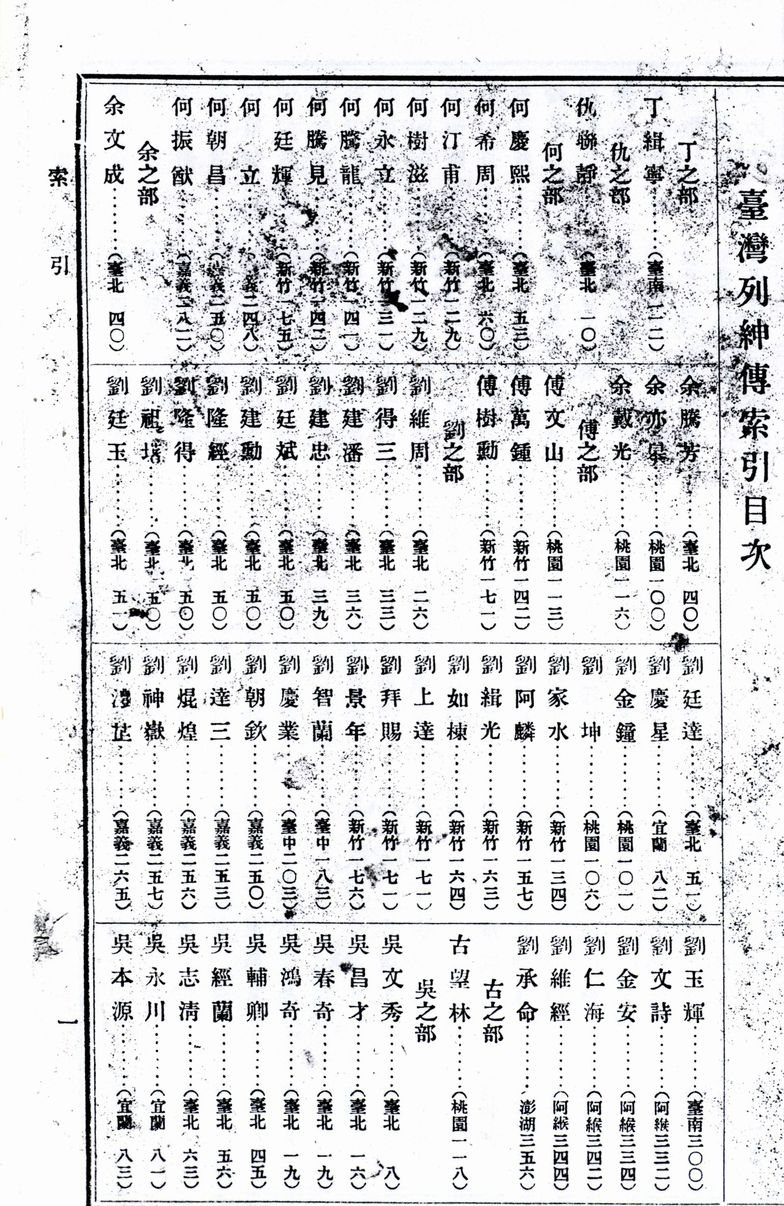 臺灣列紳傳索引目次
丁之部
丁緝寧………(臺南一一二)
仇之部
仇聯靜………(臺北一〇)
何之部
何慶熙………(臺北五三)
何希周………(臺北六〇)
何汀甫………(新竹一二九)
何樹滋………(新竹一二九)
何永立………(新竹一三一)
何騰龍………(新竹一四二)
何騰見………(新竹一四二)
何廷輝………(新竹一七五)
何立………(義二四八)
何朝昌………(義二五〇)
何振猷………(嘉義二八二)
余之部
余文成………(臺北四〇)
余騰芳………(臺北四〇)
余亦皐………(桃園一〇〇)
余戴光………(桃園一一六)
傅之部
傅文山………(桃園一一三)
傅萬鍾………(新竹一四二)
傅樹勳………(新竹一七一)
劉之部
劉維周………(臺北二六)
劉得三………(臺北三三)
劉建潘………(臺北三六)
劉建忠………(臺北三九)
劉廷斌………(臺北五〇)
劉建勳………(臺北五〇)
劉隆經………(臺北五〇)
劉隆得………(臺北五〇)
劉祖………(臺北五〇)
劉廷玉………(臺北五一)
劉廷達………(臺北五一)
劉慶星………(宜蘭八二)
劉金鐘………(桃園一〇一)
劉坤………(桃園一〇六)
劉家水………(新竹一三四)
劉阿麟………(新竹一五七)
劉緝光………(新竹一六三)
劉如棟………(新竹一六四)
劉上達………(新竹一七一)
劉拜賜………(新竹一七一)
劉景年………(新竹一七六)
劉智蘭………(臺中一八三)
劉慶業………(臺中二〇三)
劉朝欽………(嘉義二五〇)
劉達三………(嘉義二五三)
劉焜煌………(嘉義二五六)
劉神嶽………(嘉義二五七)
劉芷………(嘉義二六五)
劉玉輝………(臺南三〇〇)
劉文詩………(阿緱三三二)
劉金安………(阿緱三三四)
劉仁海………(阿緱三四二)
劉維經………(阿緱三四四)
劉承命………(澎湖三五六)
古之部
古望林………(桃園一一八)
吳之部
吳文秀………(臺北八)
吳昌才………(臺北一六)
吳春奇………(臺北一九)
吳鴻奇………(臺北一九)
吳輔卿………(臺北四五)
吳經蘭………(臺北五六)
吳志清………(臺北六三)
吳永川………(宜蘭八一)
吳本源………(宜蘭八三)
索引
一